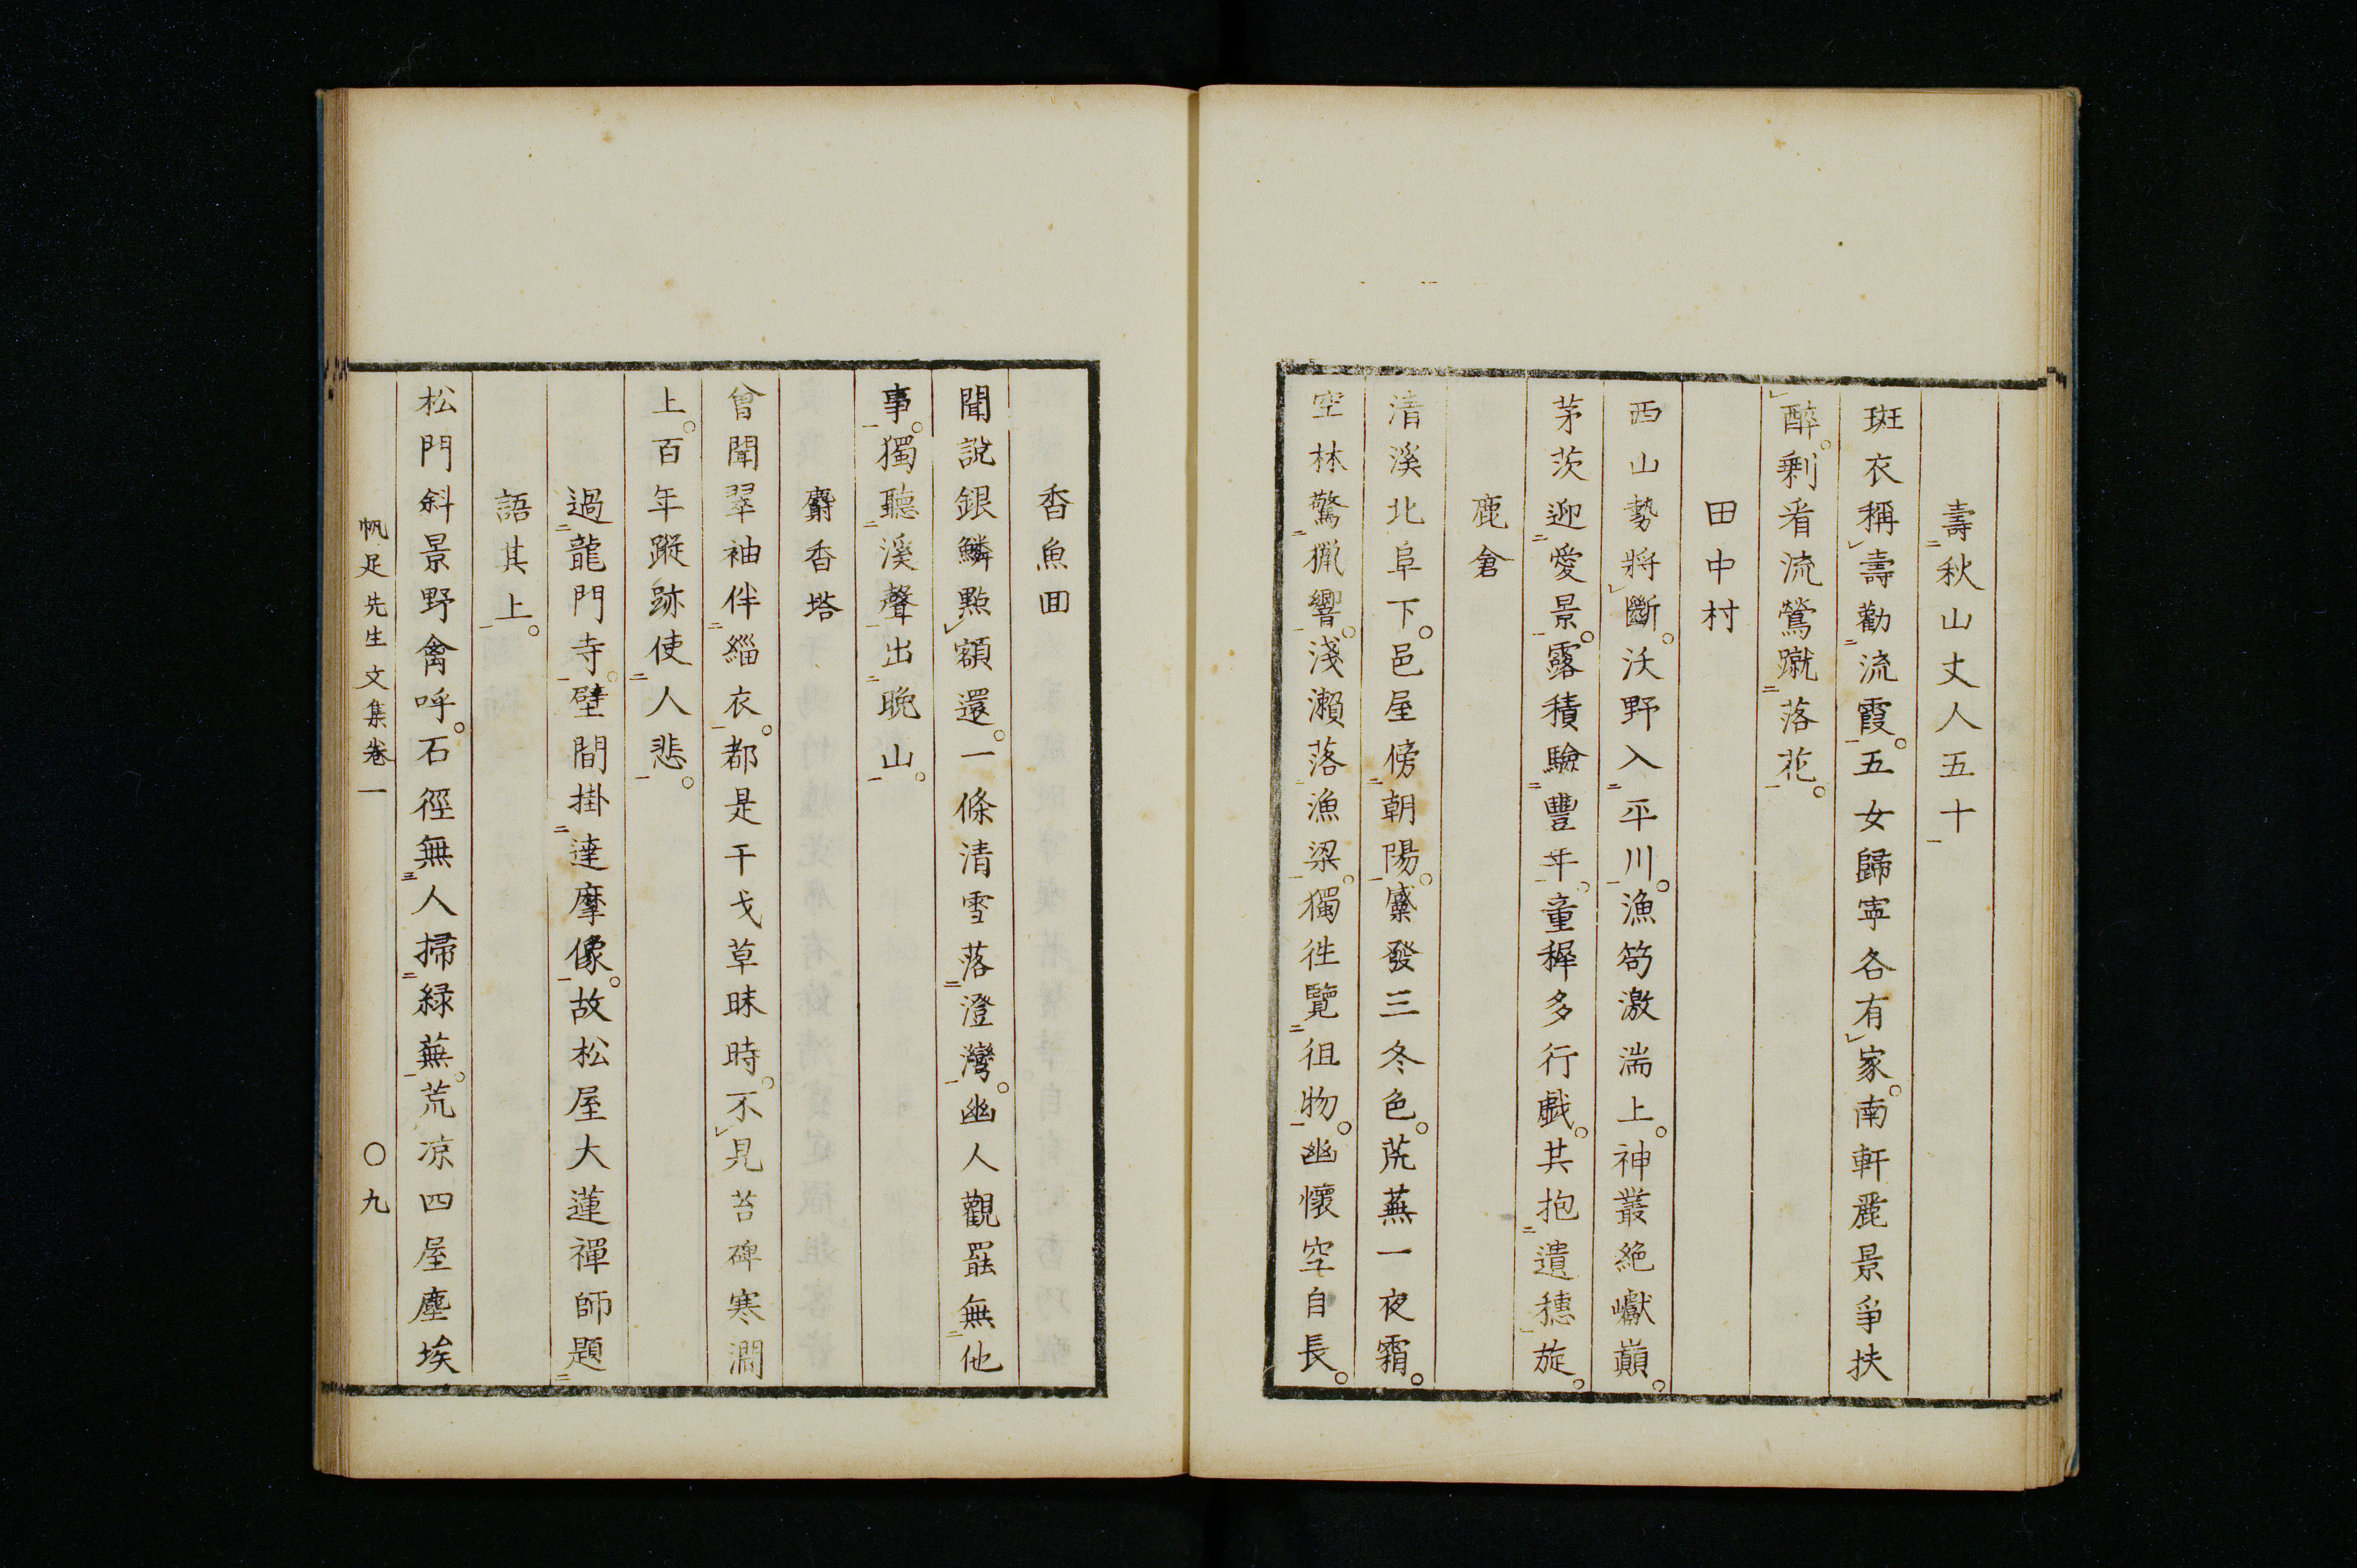 壽秋山丈人五十
斑衣稱壽勸流霞。五女歸寧各有家。南軒麗景爭扶
醉。剩看流鶯蹴落花。
田中村
西山勢將斷。沃野入平川。漁笱激湍上。神叢絶巘巓。
茅茨迎愛景。露積驗豐年。童穉多行戯。其抱遺穗旋。
鹿倉
清溪北阜下。邑屋傍朝陽。麋發三冬色。荒蕪一夜霜。
空林驚獵響。淺瀨落漁梁。獨徃覽徂物。幽懷空自長。
香魚囬
聞說銀鱗點額還。一條清雪落澄灣。幽人觀罷無他
事。獨聽溪聲出晩山。
麝香塔
曾聞翠袖伴緇衣。都是干戈草昧時。不見苔碑寒澗
上。百年蹤跡使人悲。
過龍門寺。壁間掛達摩像。故松屋大蓮禪師題
語其上。
松門斜景野禽呼。石徑無人掃緑蕪。荒凉四屋塵埃
帆足先生文集卷一 〇九